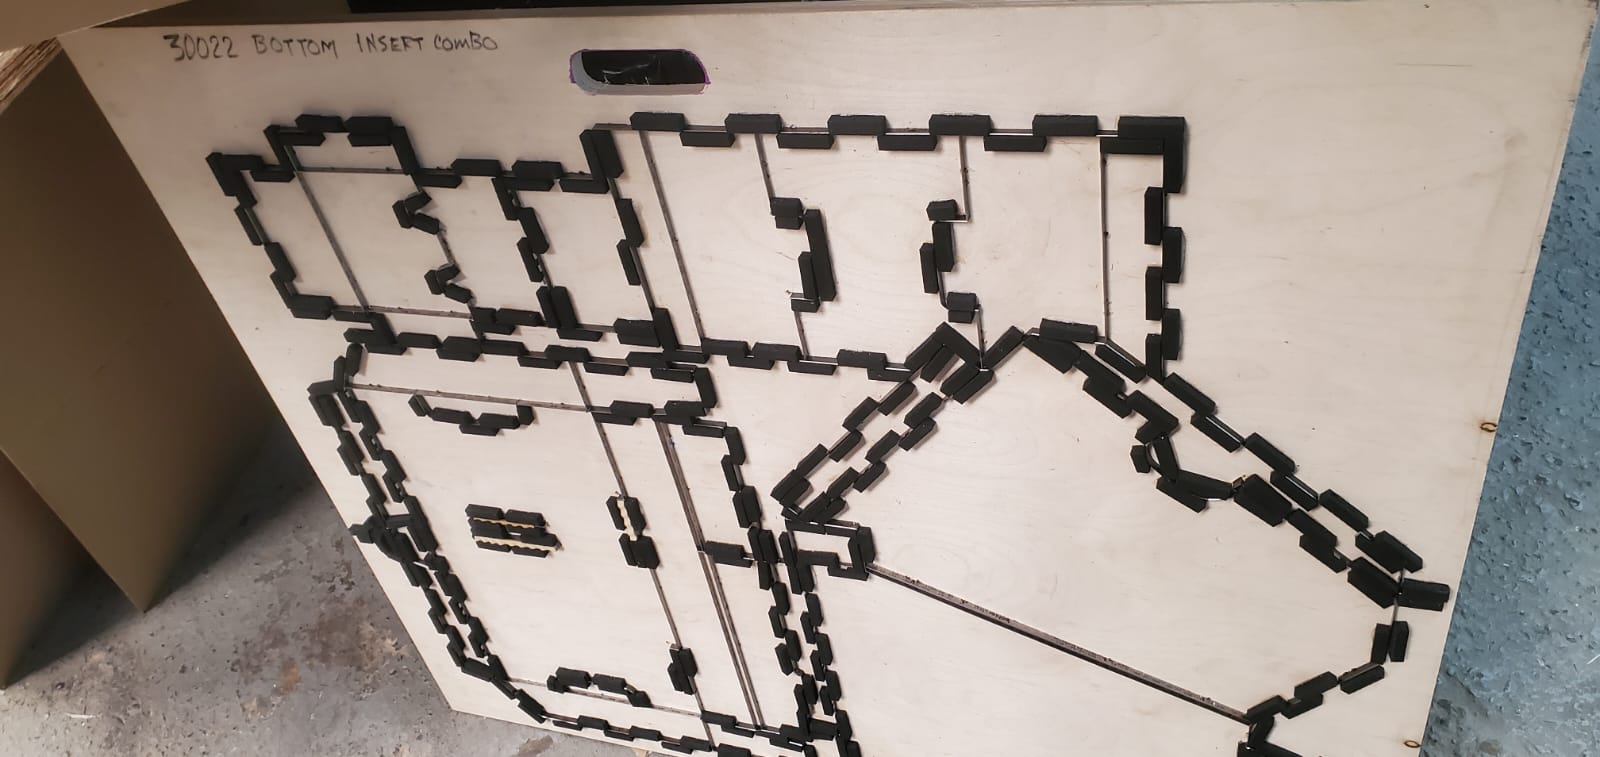 30022 BOTTOM INSERT COMBO